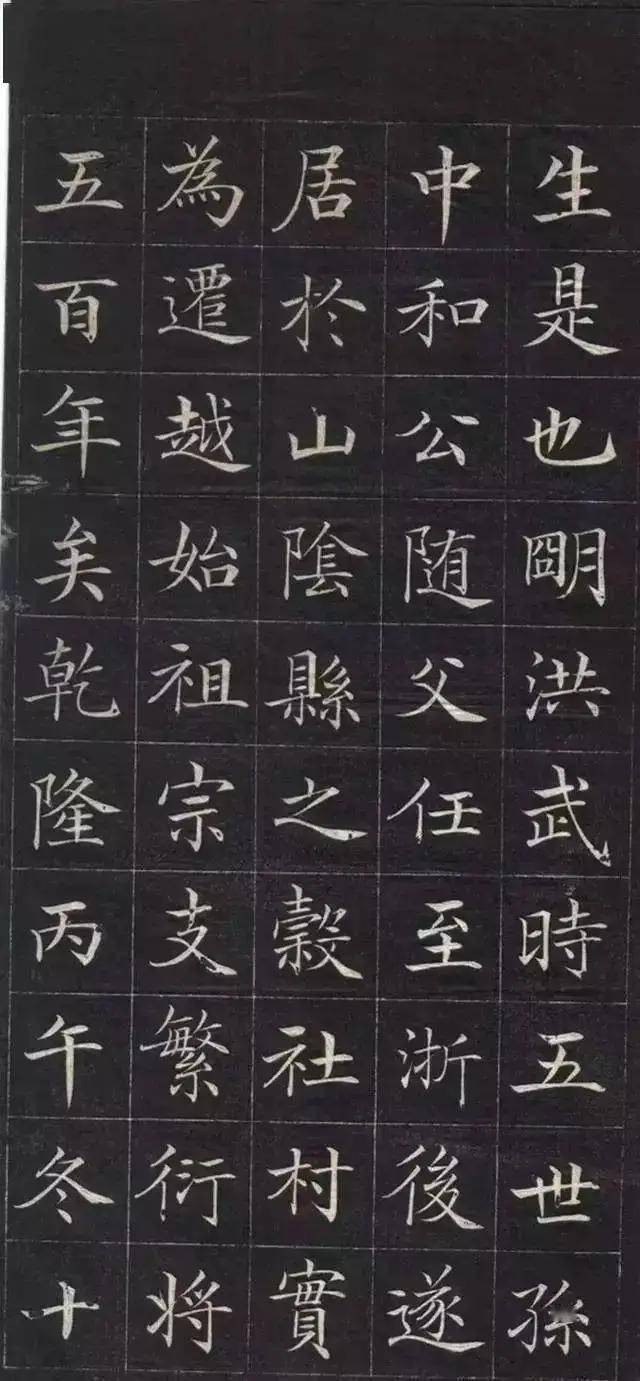 生是也朙洪武時五世孫
中和公随父任至浙後遂
居於山陰縣之縠社村實
為遷越始祖宗支繁衍将
五百年矣乾隆丙午冬十